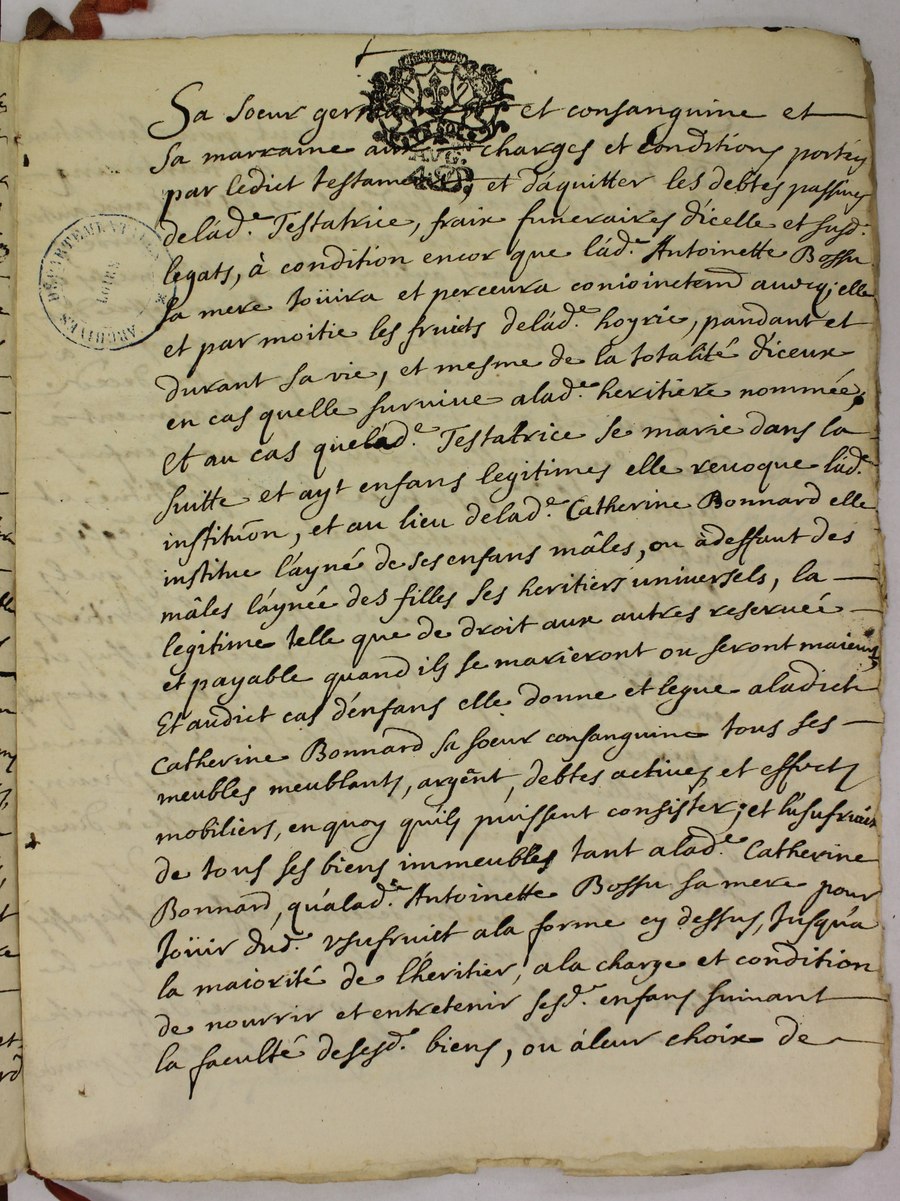 Sa soeur et consanguine et
Sa marraine aux charges et conditions portés
par ledict testament, et d'aquitter les debtes passives
delád.e Testatrice, frais funeraires d'icelle et susd.
legats, à condition encor que lád.e Antoinette Bossu
sa mere Joüira et percevra conioinctemt avecq; elle
et par moitie les fruits delád.e hoyrie, pandant et
durant sa vie, et mesme de la totalité d'iceux
en cas quelle survive alad.e heritiere nommée,
Et au cas quelád.e Testatrice se marie dans la
suitte et ayt enfans legitimes elle revoque lád.e
instituõn, et au lieu delad.e Catherine Bonnard elle
institue l'ayné de ses enfans mâles, ou àdeffaut des
mâles láynée des filles ses heritiers universels, la
legitime telle que de droit aux autres reservée
et payable quand ils se marieront ou seront maieurs
Et audict cas d'enfans elle donne et legue aladict
Catherine Bonnard sa soeur consanguine tous ses
meubles meublants, argẽnt, debtes actives et effects
mobiliers, en quoy quils puissent consister; et l'usufruict
de tous ses biens immeubles tant alad.e Catherine
Bonnard, qu'álad.e Antoinette Bossu sa mere pour
Joüir dud. usufruict ala forme cy dessus, Jusqu'a
la maiorité de l'heritier, ala charge et condition
de nourrir et entretenir sesd. enfans suivant
la faculté desesd. biens, ou àleur choix de
ARCHIVES DÉPARTEMENTALES
LOIRE